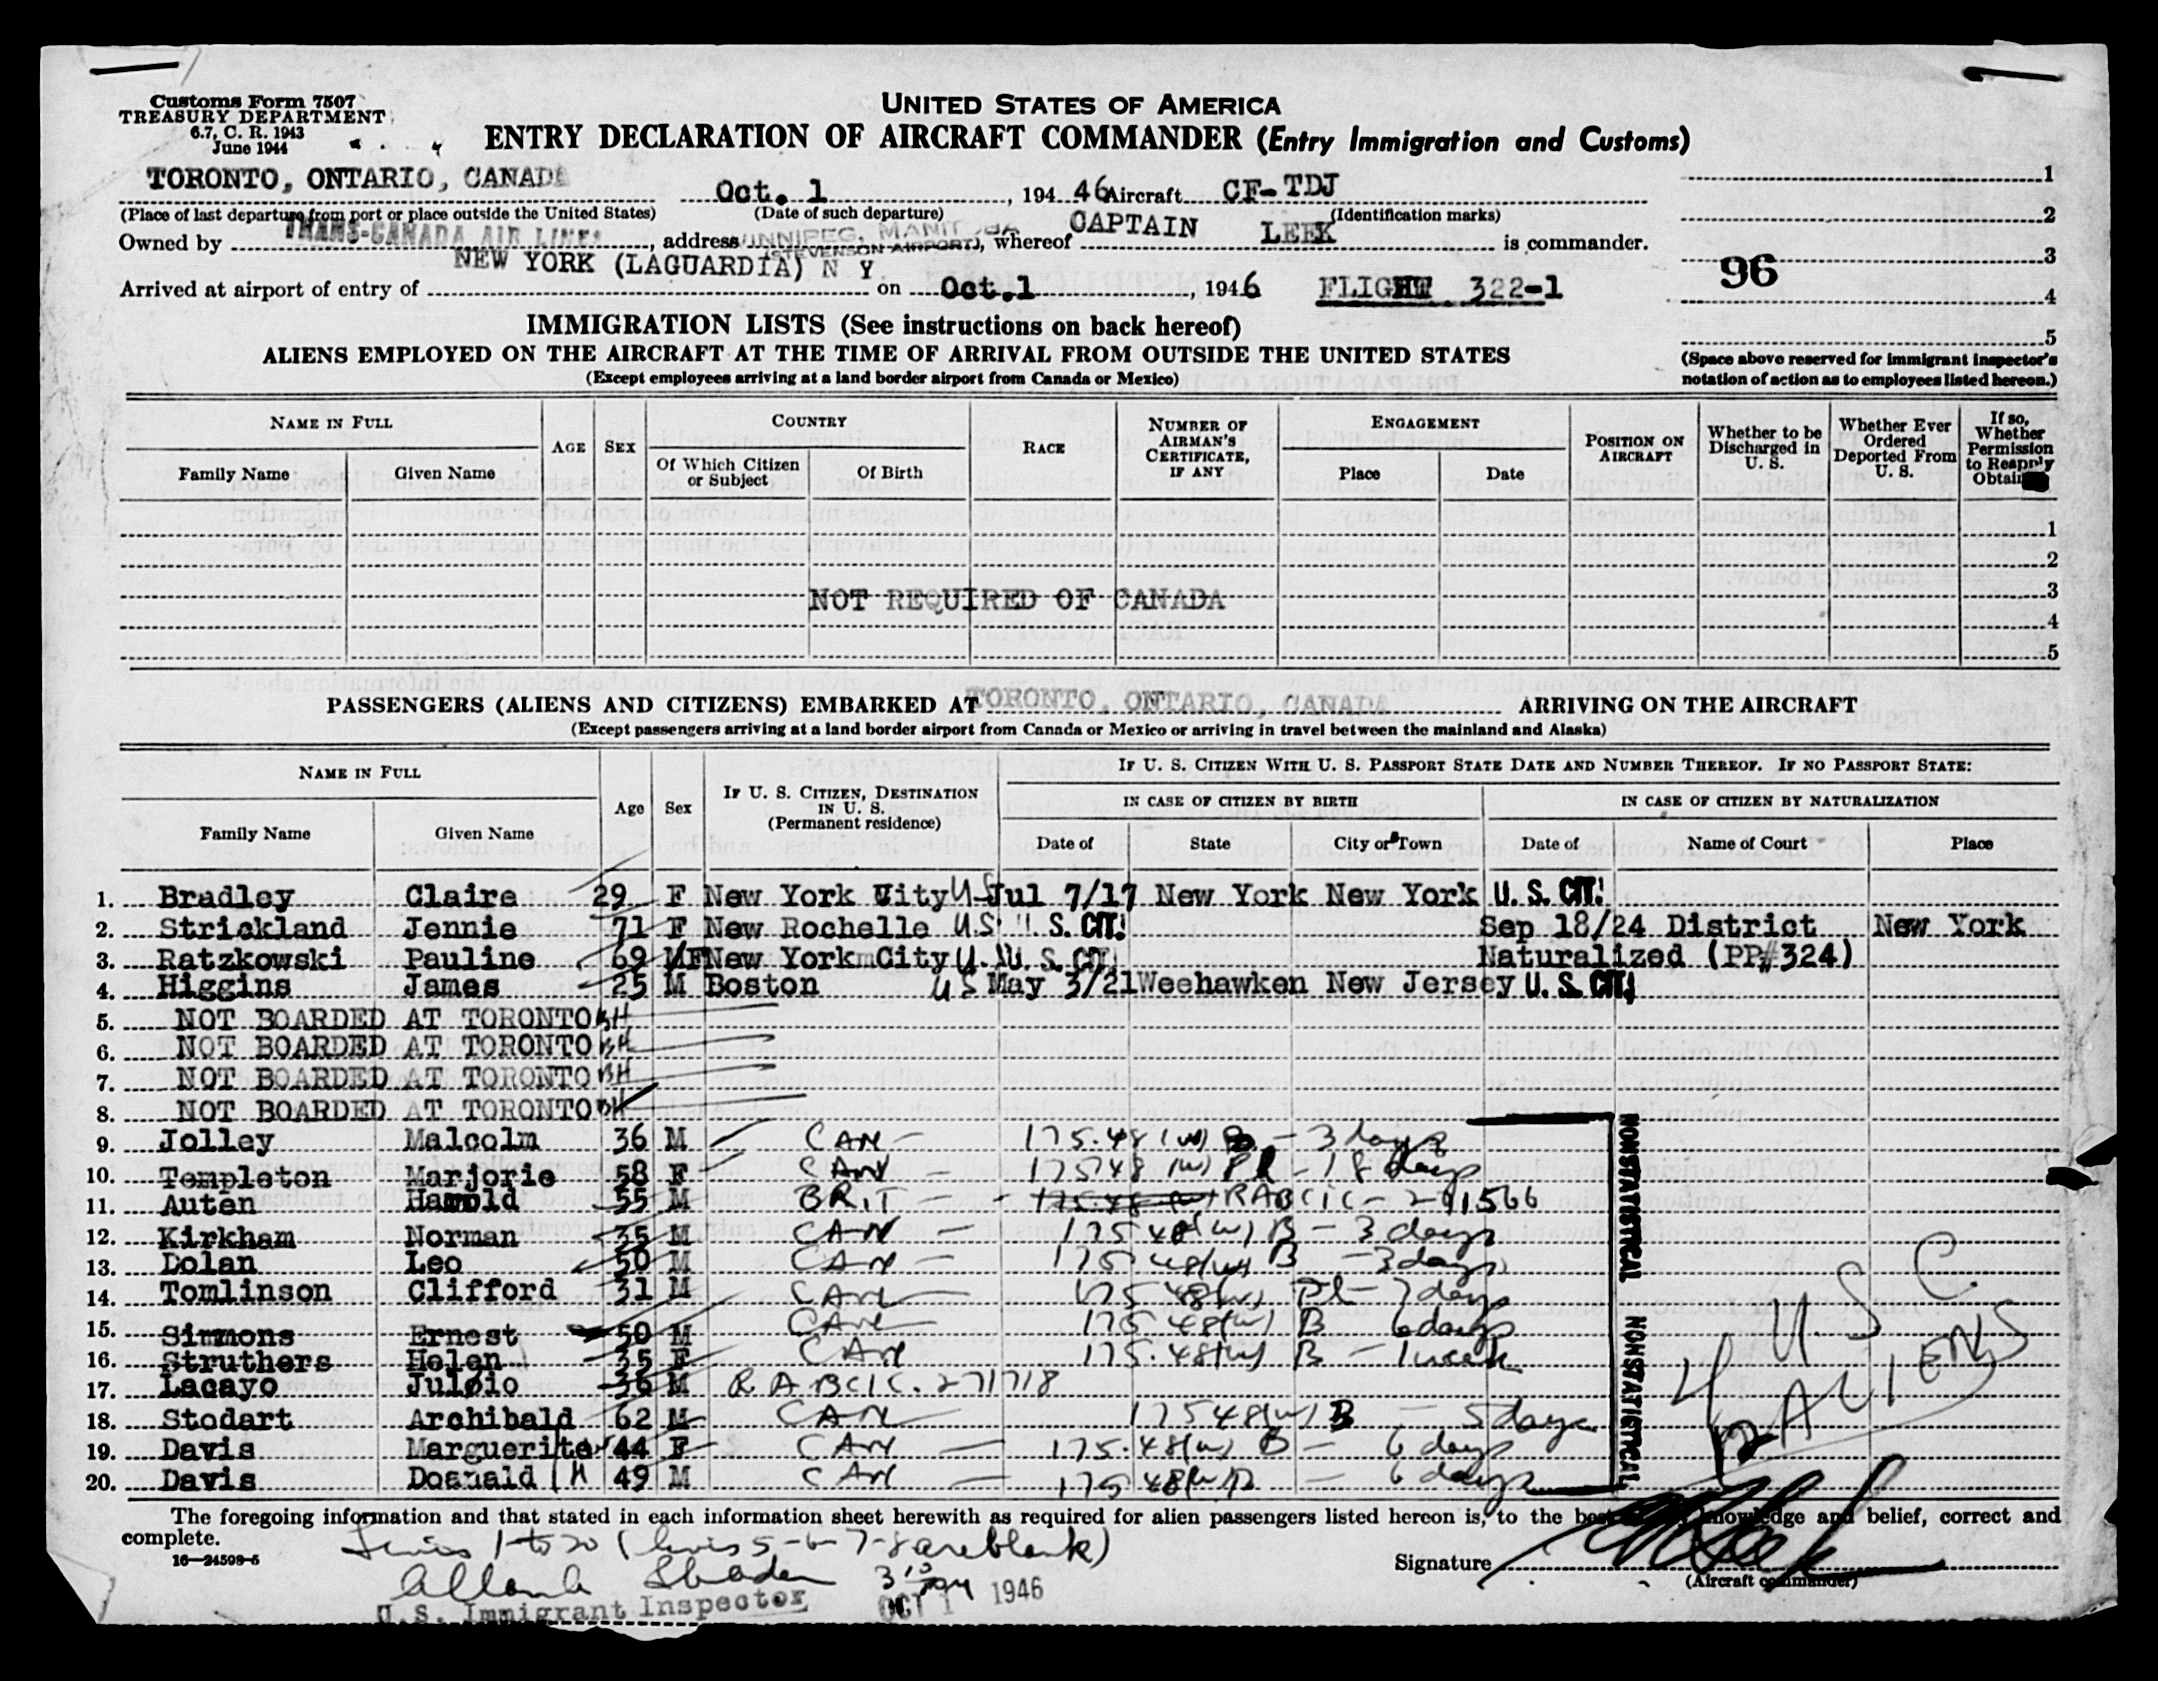 Customs Form 7507
TREASURY DEPARTMENT
6.7, C. R. 1943
June 1944
UNITED STATES OF AMERICA
ENTRY DECLARATION OF AIRCRAFT COMMANDER (Entry Immigration and Customs)
TORONTO, ONTARIO, CANADA Oct. 1, 194 46 Aircraft CF-TDJ
(Place of last departure from port or place outside the United States) (Date of such departure) (Identification marks)
Owned by TRANS-CANADA AIR LINES, address WINNIPEG, MANITOBA (STEVENSON AIRPORT), whereof CAPTAIN LEEK is commander.
NEW YORK (LAGUARDIA) N Y
Arrived at airport of entry of on Oct.1, 1946 FLIGHT 322-1
1
2
3
96
4
5
(Space above reserved for immigrant inspector's
notation of action as to employees listed hereon.)
IMMIGRATION LISTS (See instructions on back hereof)
ALIENS EMPLOYED ON THE AIRCRAFT AT THE TIME OF ARRIVAL FROM OUTSIDE THE UNITED STATES
(Except employees arriving at a land border airport from Canada or Mexico)
NAME IN FULL AGE SEX COUNTRY RACE NUMBER OF AIRMAN'S CERTIFICATE, IF ANY ENGAGEMENT POSITION ON AIRCRAFT Whether to be Discharged in U. S. Whether Ever Ordered Deported From U. S. If so, Whether Permission to Reapply Obtained
Family Name Given Name Of Which Citizen or Subject Of Birth Place Date
1
2
NOT REQUIRED OF CANADA 3
4
5
PASSENGERS (ALIENS AND CITIZENS) EMBARKED AT TORONTO, ONTARIO, CANADA ARRIVING ON THE AIRCRAFT
(Except passengers arriving at a land border airport from Canada or Mexico or arriving in travel between the mainland and Alaska)
NAME IN FULL Age Sex IF U. S. CITIZEN, DESTINATION IN U. S. (Permanent residence) IF U. S. CITIZEN WITH U. S. PASSPORT STATE DATE AND NUMBER THEREOF. IF NO PASSPORT STATE:
IN CASE OF CITIZEN BY BIRTH IN CASE OF CITIZEN BY NATURALIZATION
Family Name Given Name Date of State City or Town Date of Name of Court Place
1. Bradley Claire 29 F New York City US Jul 7/17 New York New York U. S. CIT.
2. Strickland Jennie 71 F New Rochelle U.S. U. S. CIT. Sep 18/24 District New York
3. Ratzkowski Pauline 69 F New York City U. S. CIT. Naturalized (PP#324)
4. Higgins James 25 M Boston US May 3/21 Weehawken New Jersey U. S. CIT.
5. NOT BOARDED AT TORONTO BH
6. NOT BOARDED AT TORONTO BH
7. NOT BOARDED AT TORONTO BH
8. NOT BOARDED AT TORONTO BH
9. Jolley Malcolm 36 M CAN - 175.48 (w) B - 3 days
10. Templeton Marjorie 58 F CAN - 175 48 (w) Pl - 18 days
11. Auten Harold 55 M BRIT - 175.48 (w) RABCIC - 291566
12. Kirkham Norman 35 M CAN - 175 48 (w) B - 3 days
13. Dolan Leo 50 M CAN - 175 48 (w) B - 3 days
14. Tomlinson Clifford 31 M CAN 175 48(w) Pl - 7 days
15. Simmons Ernest 50 M CAN 175 48(w) B 6 days
16. Struthers Helen 35 F CAN 175.48(w) B - 1 week
17. Lacayo Julio 36 M RABCIC. 271718
18. Stodart Archibald 62 M CAN 175 48(w) B - 5 days
19. Davis Marguerite 44 F CAN - 175.48(w) B - 6 days
20. Davis Doanald H 49 M CAN - 175 48(w) B - 6 days
NONSTATISTICAL NONSTATISTICAL
4 U. S. C.
12 ALIENS
The foregoing information and that stated in each information sheet herewith as required for alien passengers listed hereon is, to the best knowledge and belief, correct and
complete.
16—24509-5
Lines 1 to 20 (lines 5-6-7-8 are blank)
3 15 PM
U.S. Immigrant Inspector OCT 1 1946
Signature
(Aircraft commander)